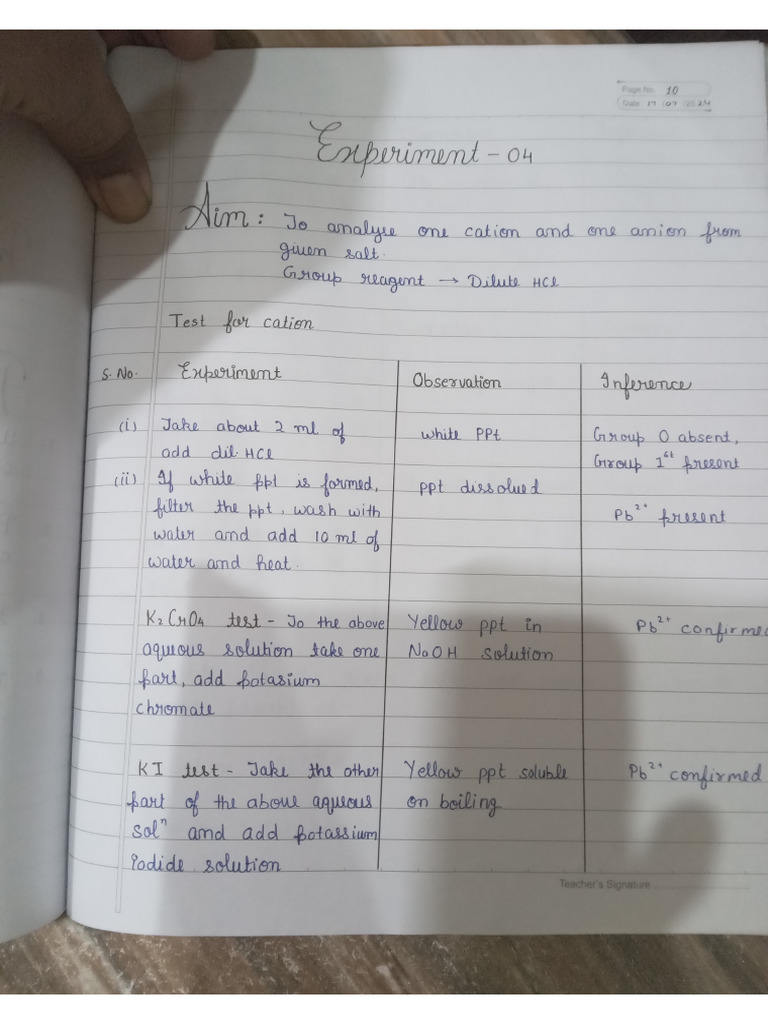 Page No. 10
Date 17 07 2024
Experiment - 04
Aim : To analyse one cation and one anion from
given salt.
Group reagent → Dilute HCl
Test for cation
S. No. Experiment Observation Inference
(i) Take about 2 ml of
add dil. HCl
white PPt
Group 0 absent,
Group 1st present
(ii) If white ppt is formed,
filter the ppt, wash with
water and add 10 ml of
water and heat.
ppt dissolved
Pb2+ present
K2CrO4 test - To the above
aqueous solution take one
part, add potasium
chromate
Yellow ppt in
NaOH solution
Pb2+ confirmed
KI test - Take the other
part of the above aqueous
soln and add potassium
iodide solution
Yellow ppt soluble
on boiling
Pb2+ confirmed
Teacher's Signature